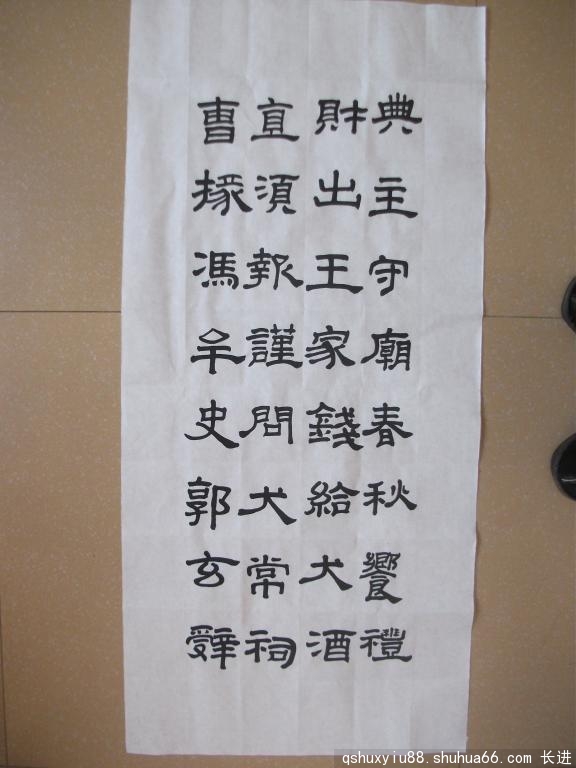 典主守廟春秋饗禮
財出王家錢給犬酒
直須報謹問犬常祠
曹掾馮牟史郭玄辭
qshuxyiu88.shuhua66.com 长进